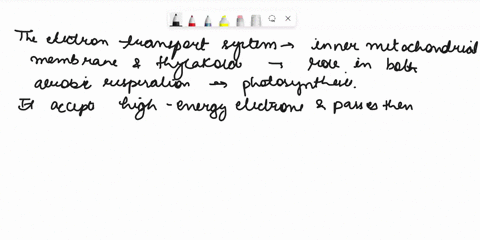 The electron transport system → inner mitochondrial
membrane & thylakoid → role in both
aerobic respiration → photosynthesis.
It accept high-energy electrons & passes them